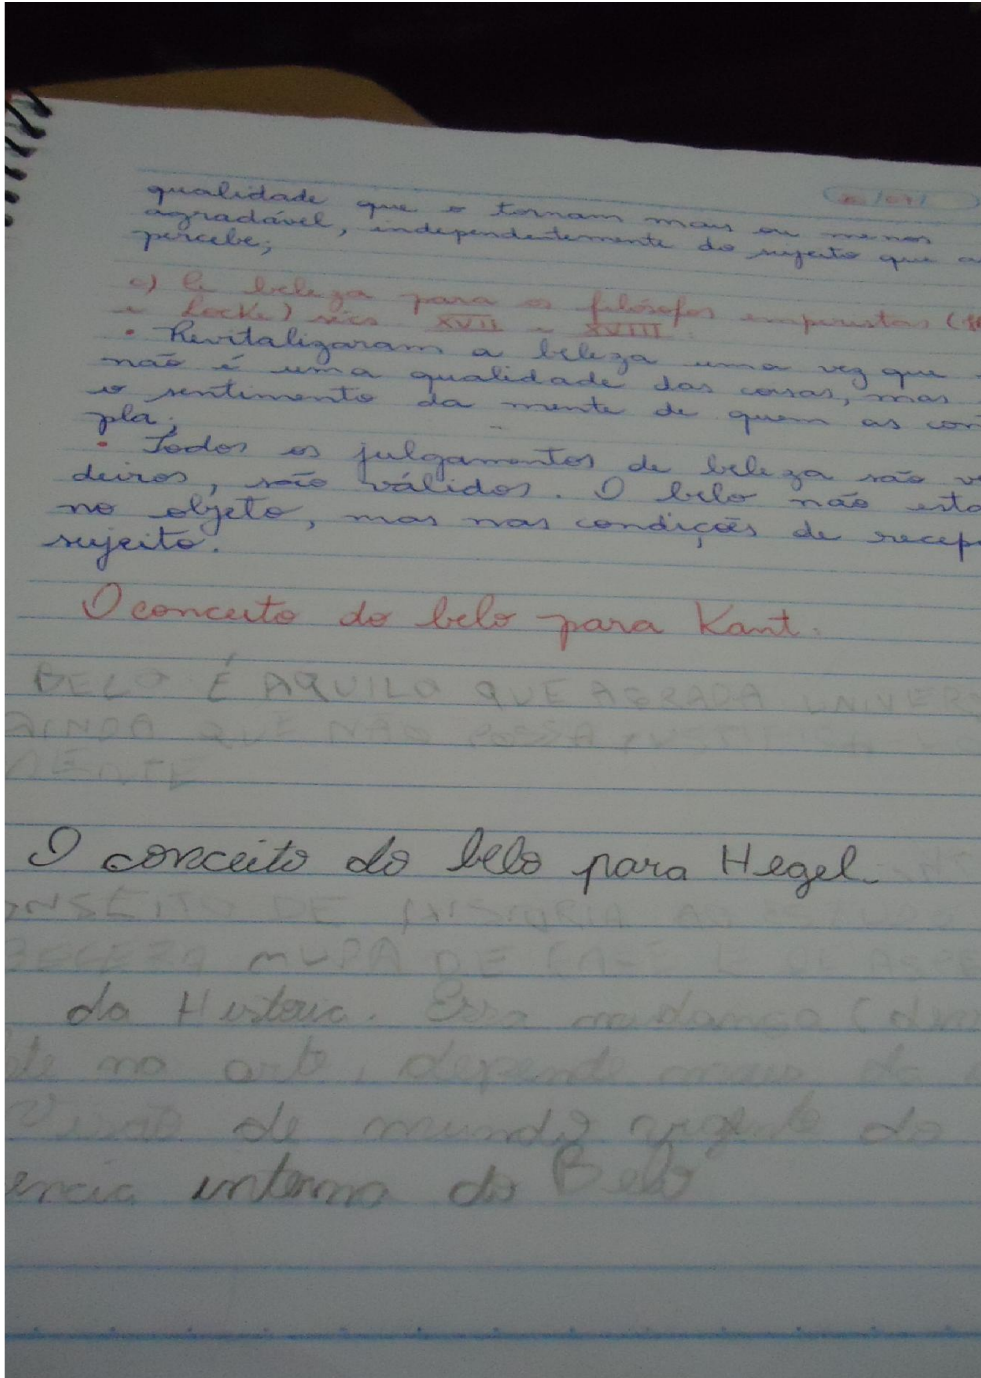 qualidade que o tornam mais ou menos
agradável, independentemente do sujeito que a
percebe;
c) A beleza para os filósofos empiristas (
e Locke) sécs XVII e XVIII.
• Revitalizaram a beleza uma vez que
não é uma qualidade das coisas, mas
o sentimento da mente de quem as con
pla;
• Todos os julgamentos de beleza são ve
deiros, são válidos. O belo não está
no objeto, mas nas condições de recep
sujeito.
O conceito do belo para Kant.
BELO É AQUILO QUE AGRADA UNIVERS
AINDA QUE NÃO POSSA
MENTE
O conceito do belo para Hegel.
ONSEITO DE HISTORIA AO
BELEZA MUDA DE FACE E DE ASPE
da Historia. Essa mudança (
te na arte, depende mais da
visão de mundo vigente do
encia interna do Belo